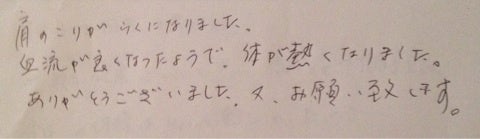 肩のこりがらくになりました。
血流が良くなったようで、体が熱くなりました。
ありがとうございました。又、お願い致します。